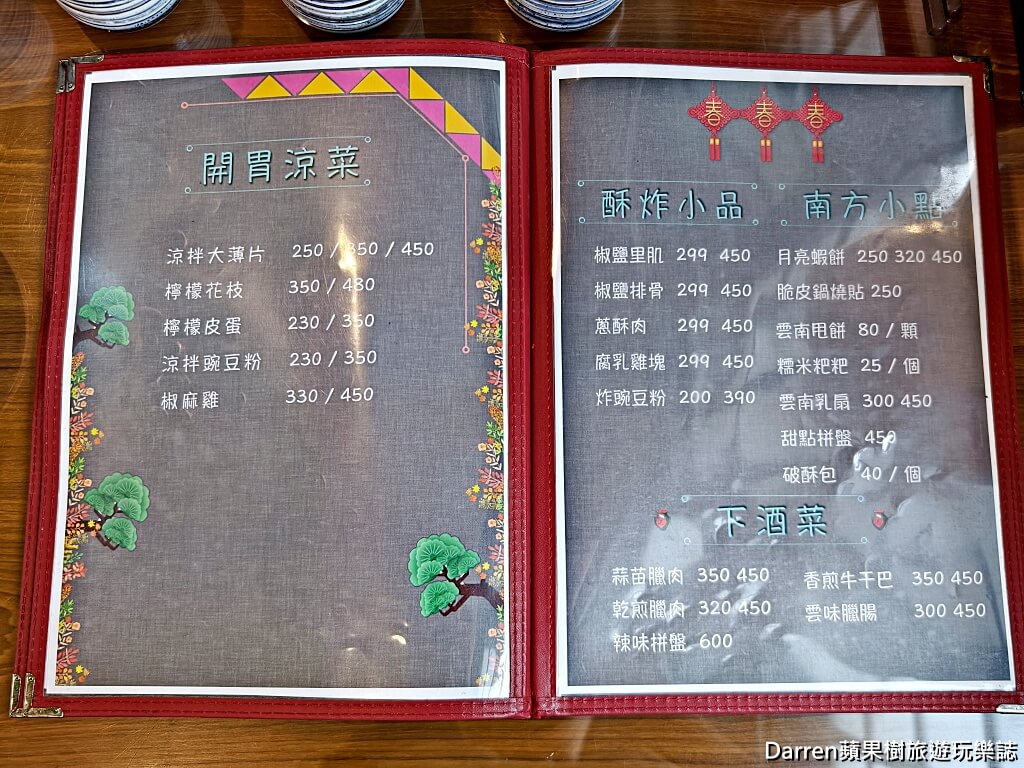 開胃涼菜
涼拌大薄片 250 / 350 / 450
檸檬花枝 350 / 480
檸檬皮蛋 230 / 350
涼拌豌豆粉 230 / 350
椒麻雞 330 / 450
春 春 春
酥炸小品
椒鹽里肌 299 450
椒鹽排骨 299 450
蔥酥肉 299 450
腐乳雞塊 299 450
炸豌豆粉 200 390
南方小點
月亮蝦餅 250 320 450
脆皮鍋燒貼 250
雲南甩餅 80 / 顆
糯米粑粑 25 / 個
雲南乳扇 300 450
甜點拼盤 450
破酥包 40 / 個
下酒菜
蒜苗臘肉 350 450
乾煎臘肉 320 450
辣味拼盤 600
香煎牛干巴 350 450
雲味臘腸 300 450
Darren蘋果樹旅遊玩樂誌